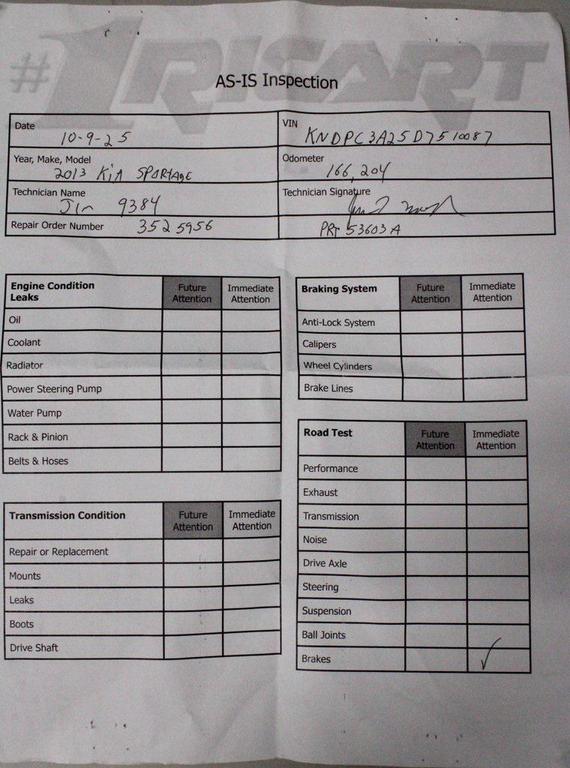 #1 RISART
AS-IS Inspection
Date 10-9-25
VIN KNDPC3A25D7510087
Year, Make, Model 2013 KiA SPORTAGE
Odometer 166,204
Technician Name Jim 9384
Technician Signature
Repair Order Number 3525956
PRT 53603A
Engine Condition Leaks Future Attention Immediate Attention
Oil
Coolant
Radiator
Power Steering Pump
Water Pump
Rack & Pinion
Belts & Hoses
Transmission Condition Future Attention Immediate Attention
Repair or Replacement
Mounts
Leaks
Boots
Drive Shaft
Braking System Future Attention Immediate Attention
Anti-Lock System
Calipers
Wheel Cylinders
Brake Lines
Road Test Future Attention Immediate Attention
Performance
Exhaust
Transmission
Noise
Drive Axle
Steering
Suspension
Ball Joints
Brakes ✓